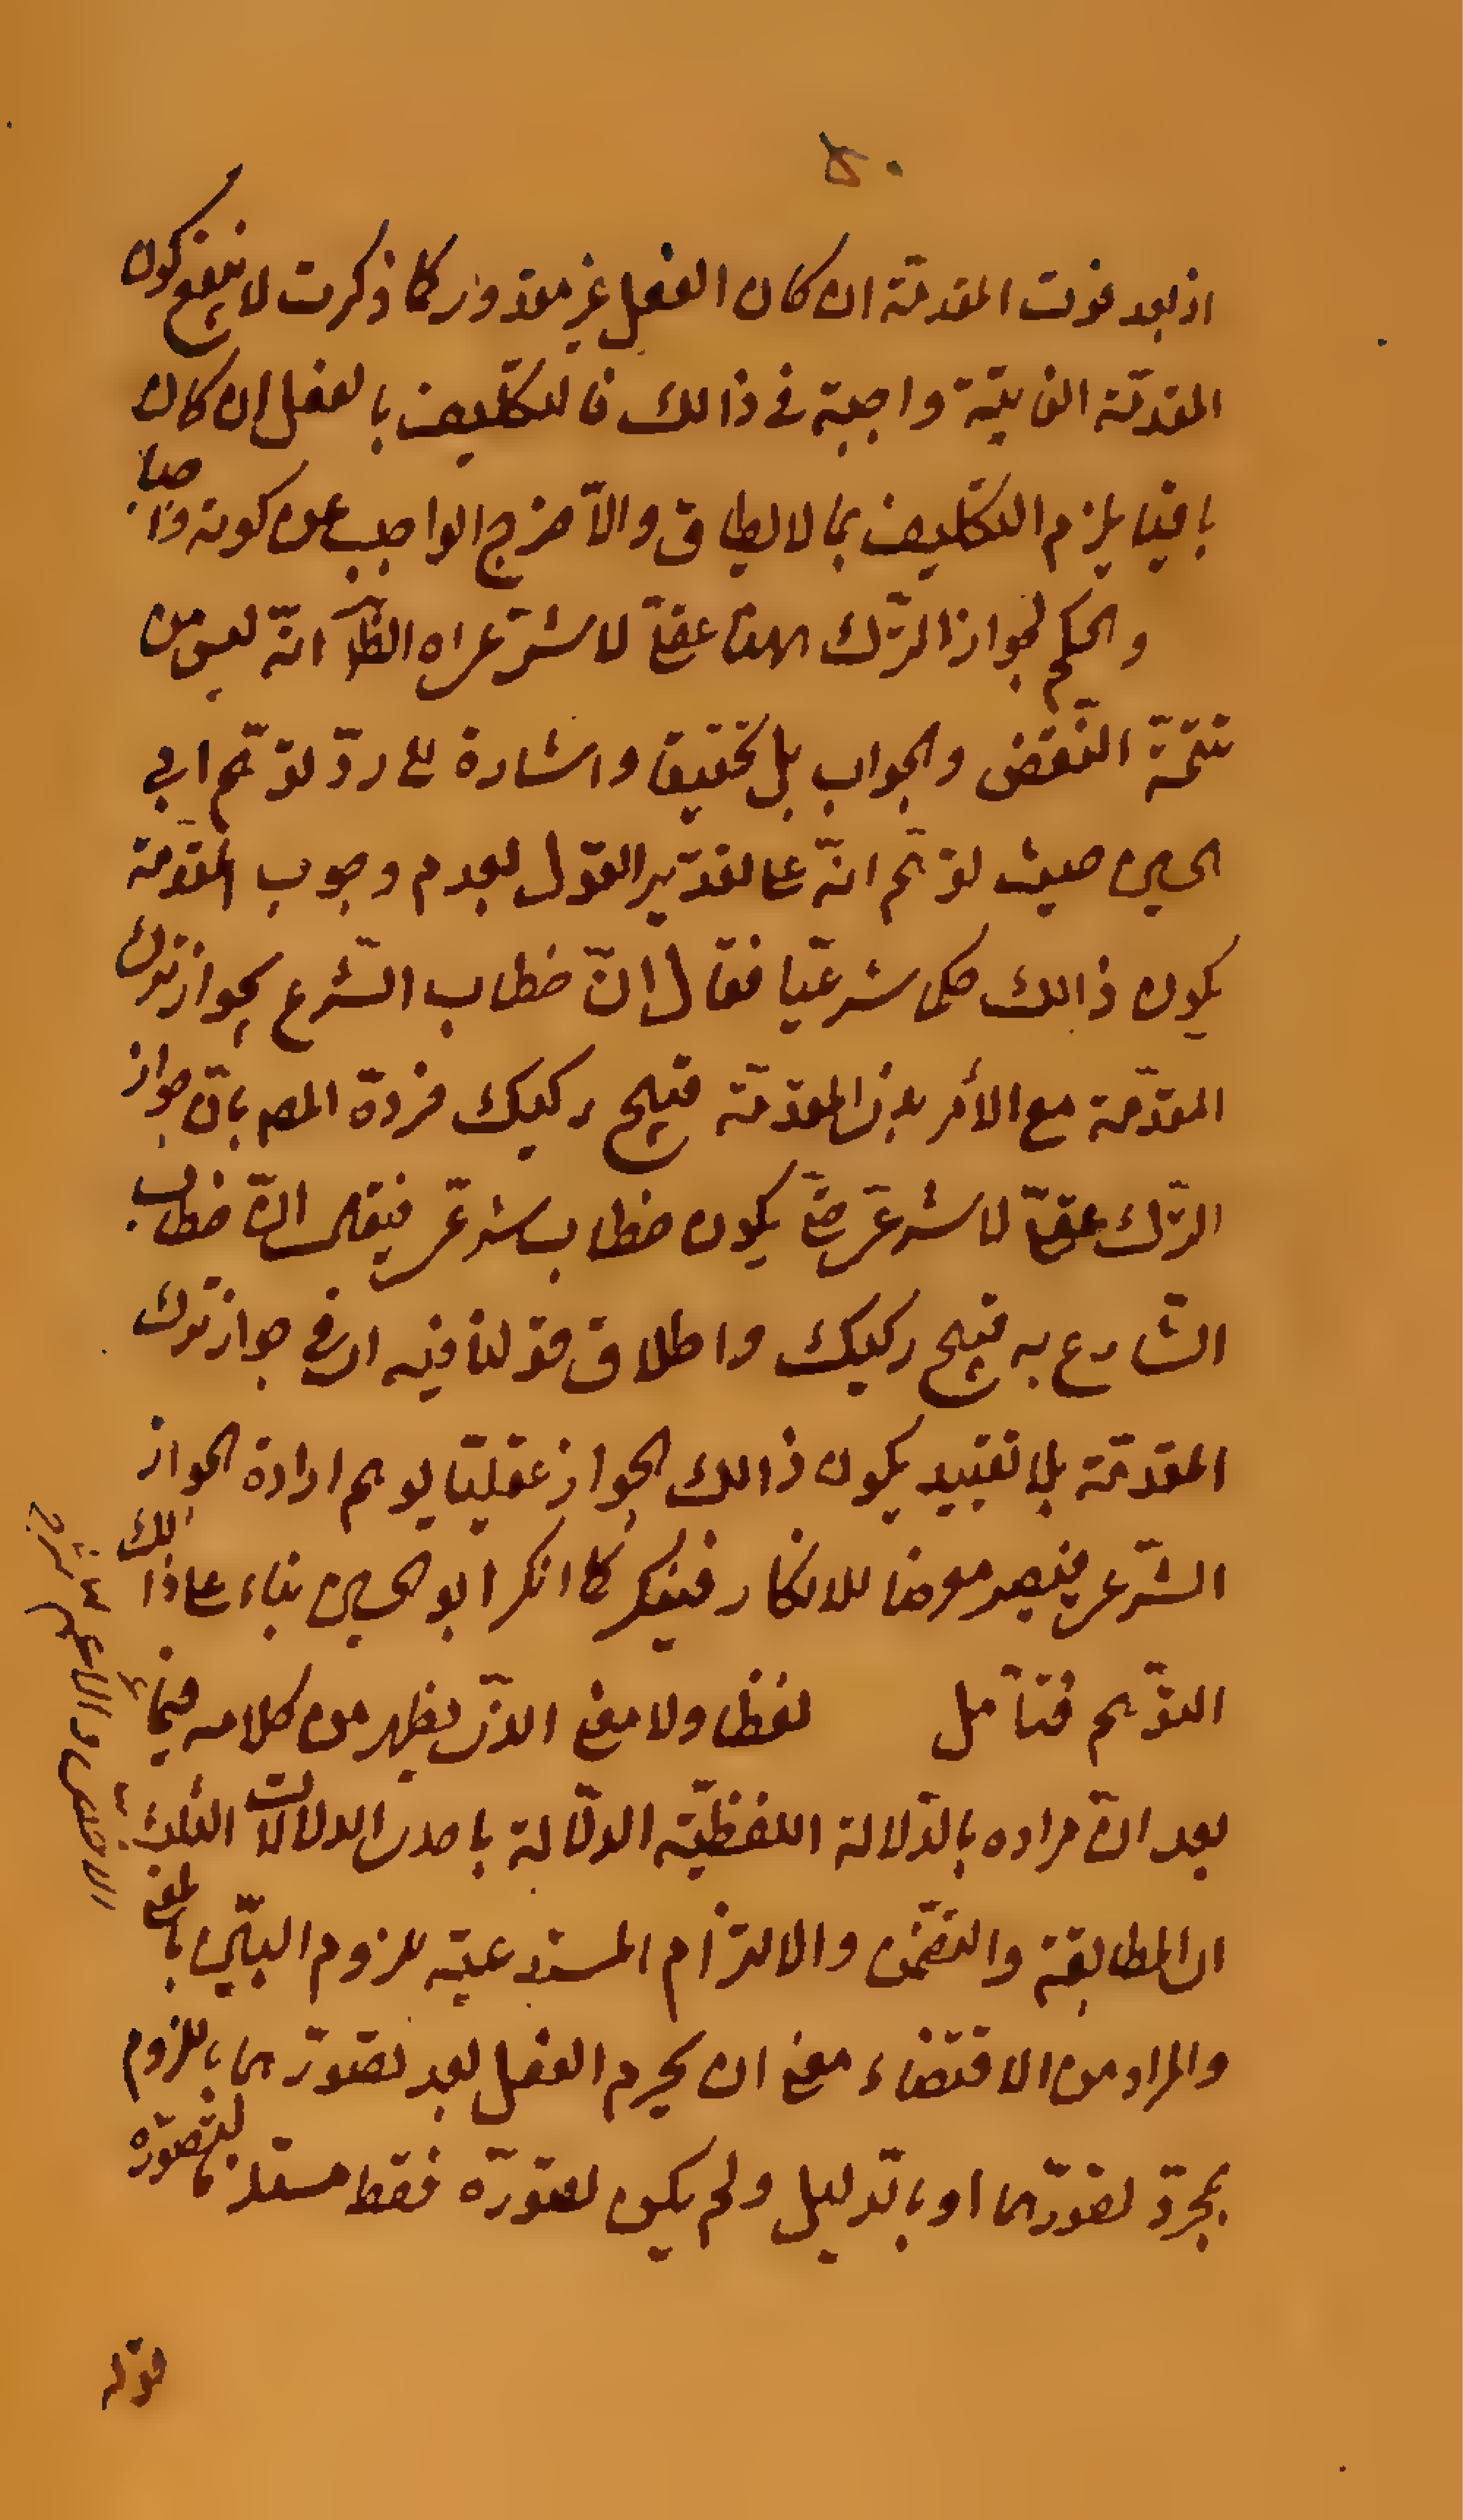 اذ بعد فوت المقدمّة ان كان الفعل غير مقدور كما ذكرت لا ينفع كون
المقدمّة الفايتة واجبة فى ذالك فالتكليف بالفعل ان كان
باقيا يلزم التكليف بما لا يطاق والّا خرج الواجب عن كونه واجبا
والحكم بجواز الترّك ههنا عقلىّ لا شرعىّ اه الظّ انّه ليس من
تتمّة النّقض والجواب بل تحقيق واشارة الى ردّ توهّم ابى
الحسين حيث توهّم انّه على تقدير القول بعدم وجوب المقدّمة
يكون ذالك حكما شرعيّا فقال انّ خطاب الشّرع بجواز ترك
المقدّمة مع الأمر بذى المقدّمة قبيح ركيك فردّه المص بانّ جواز
الترّك عقلىّ لا شرعىّ حتّى يكون خطاب شرعىّ فيقال انّ خطاب
الشّارع به قبيح ركيك واطلاق قولنا فيه اى فى جواز ترك
المقدّمة بلا تقييد بكون ذالك الجواز عقليّا يوهم ارادة الجواز
الشّرعى فيصير معرضا للانكار فينكر كما انكر ابو الحسين بناء على ذالك
التوّهم فتأمّل لفظا ولا معنى الذّى يظهر من كلامه فيما
بعد انّ مراده بالدّلالة اللفظيّة الدّلالة باحدى الدلالات الثلث
اى المطابقة والتضمّن والالتزام المستدعية للزوم البيّن بالمعنى
والمراد من الاقتضاء معنى ان يجزم العقل بعد تصوّرهما باللزوم
بمجرّد تصوّرهما او بالدّليل ولم يكن تصوّره فقط مستلزما لتصوّره
قوله